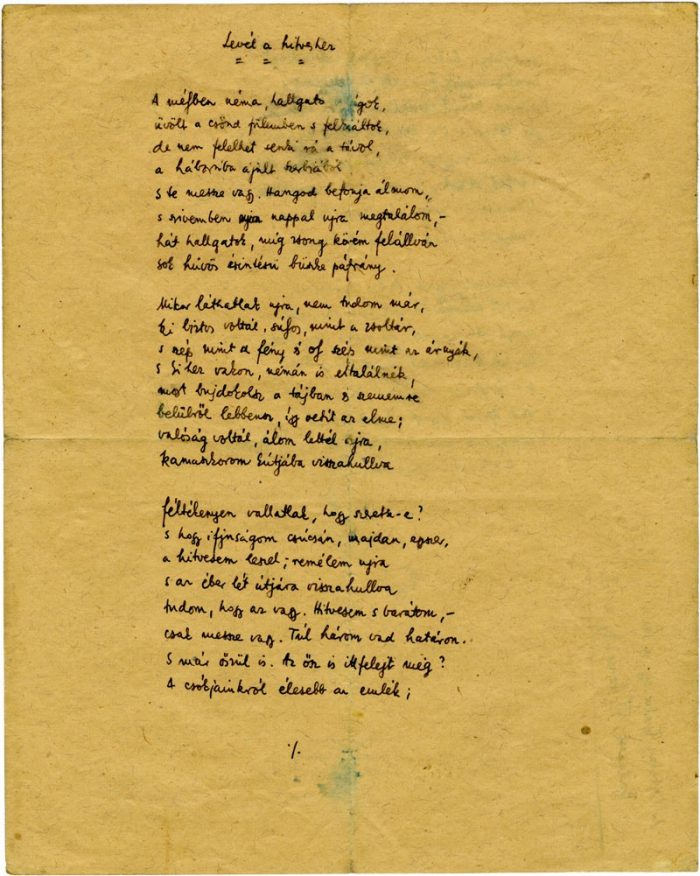 Levél a hitveshez
A mélyben néma, hallgató világok,
üvölt a csönd fülemben s felkiáltok,
de nem felelhet senki rá a távol,
a háborúba ájult Szerbiából
s te messze vagy. Hangod befonja álmom,
s szivemben nappal ujra megtalálom, –
hát hallgatok, míg zsong körém felállván
sok hűvös érintésü büszke páfrány.
Mikor láthatlak ujra, nem tudom már,
ki biztos voltál, súlyos, mint a zsoltár,
s szép mint a fény s oly szép mint az árnyék,
s kihez vakon, némán is eltalálnék,
most bujdokolsz a tájban s szememre
belülről lebbensz, így vetít az elme;
valóság voltál, álom lettél ujra,
kamaszkorom kútjába visszahullva
féltékenyen vallatlak, hogy szeretsz-e?
s hogy ifjuságom csúcsán, majdan, egyszer,
a hitvesem leszel; remélem ujra
s az éber lét útjára visszahullva
tudom, hogy az vagy. Hitvesem s barátom, –
csak messze vagy. Túl három vad határon.
S már őszül is. Az ősz is ittfelejt még?
A csókjainkról élesebb az emlék;
./.